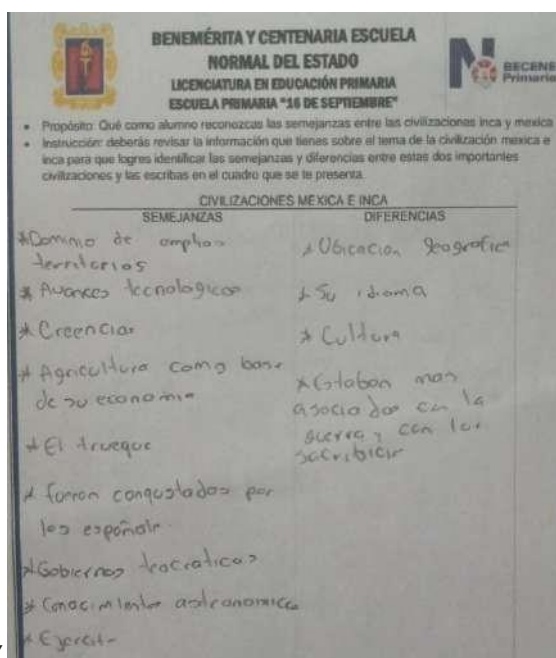 BENEMÉRITA Y CENTENARIA ESCUELA
NORMAL DEL ESTADO
LICENCIATURA EN EDUCACIÓN PRIMARIA
ESCUELA PRIMARIA "16 DE SEPTIEMBRE"
BECENE
Primaria
• Propósito: Qué como alumno reconozcas las semejanzas entre las civilizaciones inca y mexica
• Instrucción: deberás revisar la información que tienes sobre el tema de la civilización mexica e
inca para que logres identificar las semejanzas y diferencias entre estas dos importantes
civilizaciones y las escribas en el cuadro que se te presenta.
CIVILIZACIONES MEXICA E INCA
SEMEJANZAS
* Dominio de amplios
territorios
* Avances tecnologicos
* Creencias
* Agricultura como base
de su economia
* El trueque
* fueron conqustados por
los españole
* Gobiernos teocraticos
* Conocimientos astronomicos
* Ejercito
DIFERENCIAS
* Ubicacion geografica
* Su idioma
* Cultura
* Estaban mas
asociados con la
guerra y con los